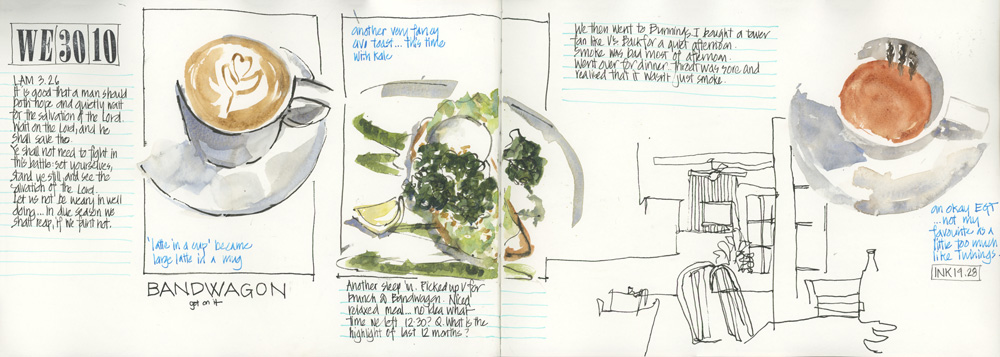 WE 30 10
LAM 3.26
It is good that a man should
both hope and quietly wait
for the salvation of the Lord.
Wait on the Lord, and he
shall save thee.
Ye shall not need to fight in
this battle: set yourselves,
stand ye still, and see the
salvation of the Lord.
Let us not be weary in well
doing... In due season we
shall reap, if we faint not.
'latte in a cup' became
large latte in a mug
BANDWAGON
get on it
another very fancy
avo toast... this time
with Kale
Another sleep in. Picked up V for
brunch @ Bandwagon. Nice
relaxed meal... no idea what
time we left 12:30? Q. What is the
highlight of last 12 months?
We then went to Bunnings. I bought a tower
fan like V's. Back for a quiet afternoon.
Smoke was bad most of afternoon.
Went over for dinner. Throat was sore and
realised that it wasn't just smoke.
an okay EGT
...not my
favourite as a
little too much
like Twinings.
INK 19.28